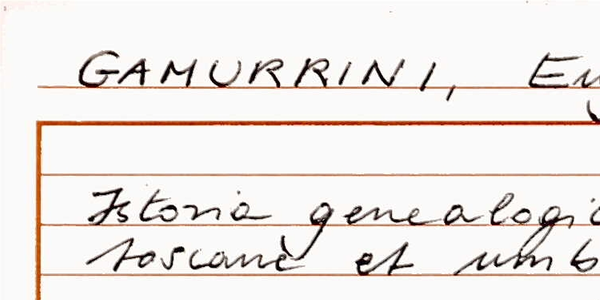 GAMURRINI, Eu
Istoria genealogic
toscane et umb